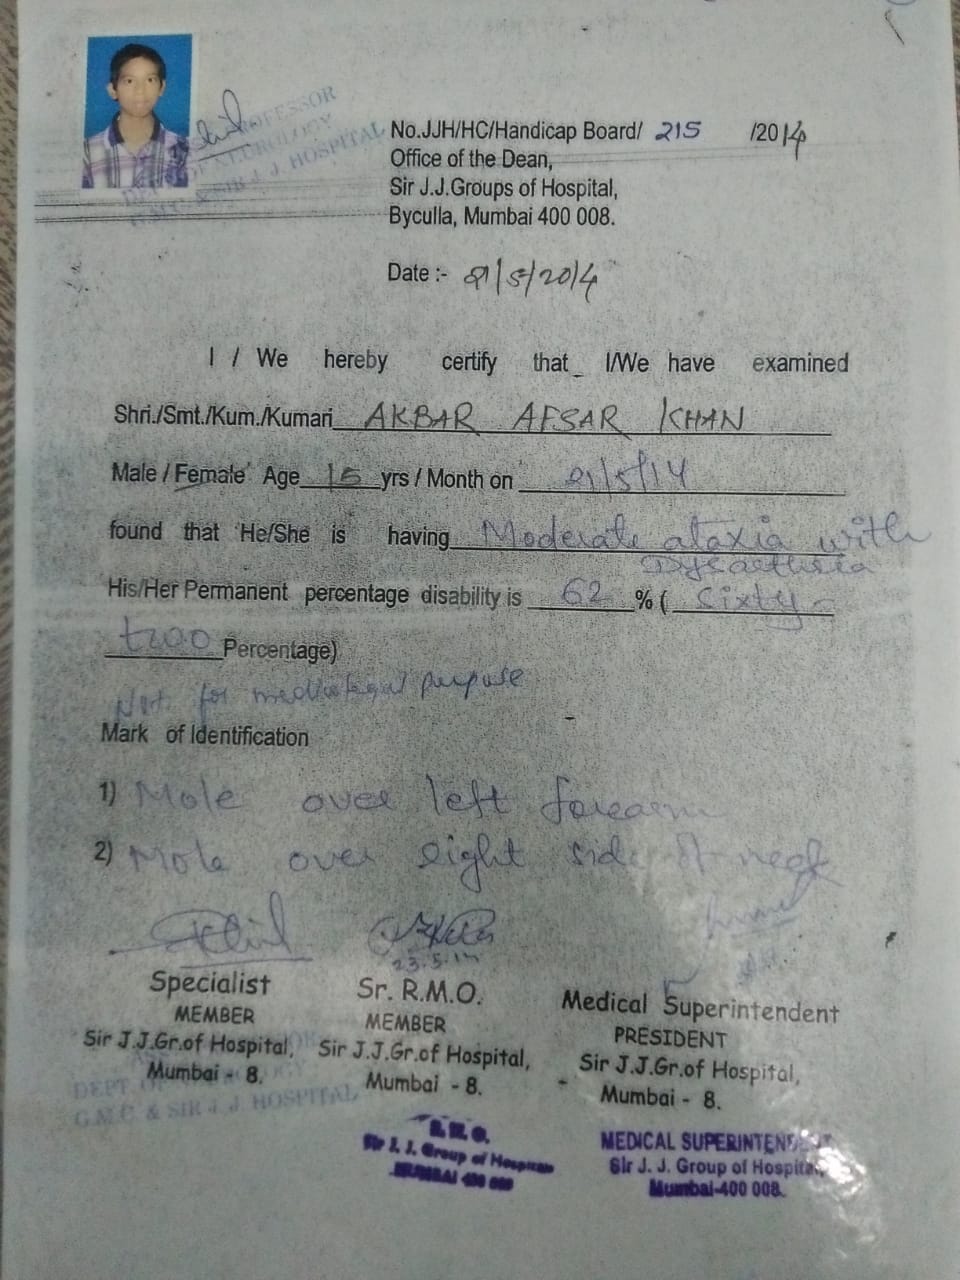 PROFESSOR
NEUROLOGY
G.M.C. & SIR J. J. HOSPITAL
No.JJH/HC/Handicap Board/ 215 /2014
Office of the Dean,
Sir J.J.Groups of Hospital,
Byculla, Mumbai 400 008.
Date :- 21/5/2014
I / We hereby certify that_ I/We have examined
Shri./Smt./Kum./Kumari AKBAR AFSAR KHAN
Male / Female Age 15 yrs / Month on 21/5/14
found that He/She is having Moderate ataxia with
His/Her Permanent percentage disability is 62 % ( Sixty-
two Percentage)
Not for medicolegal purpose
Mark of Identification
1) Mole over left forearm
2) Mole over right side of neck
23.5.14
Specialist Sr. R.M.O. Medical Superintendent
MEMBER MEMBER PRESIDENT
Sir J.J.Gr.of Hospital, Sir J.J.Gr.of Hospital, Sir J.J.Gr.of Hospital,
Mumbai - 8. Mumbai - 8. Mumbai - 8.
DEPT. OF
G.M.C. & SIR J. J. HOSPITAL
R.M.O. MEDICAL SUPERINTENDENT
Sir J. J. Group of Hospitals Sir J. J. Group of Hospital,
MUMBAI 400 008 Mumbai-400 008.